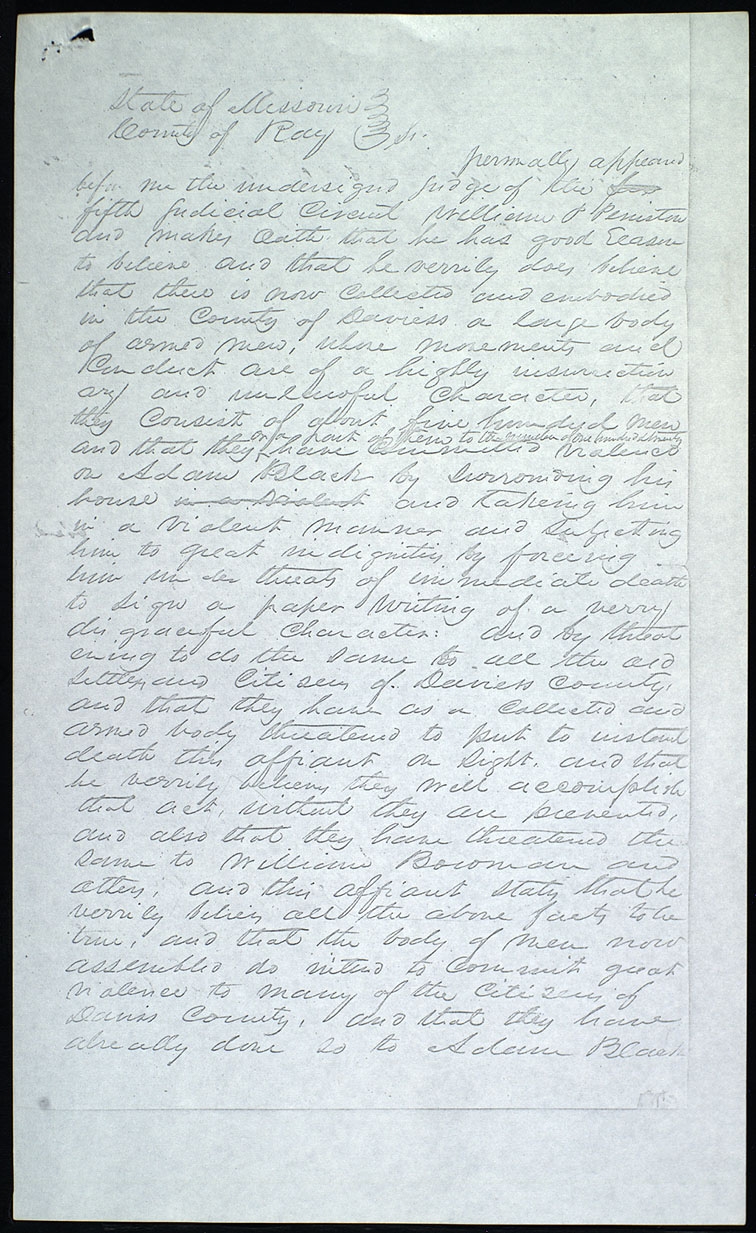 State of Missouri
County of Ray Ss.
personally appeared
before me the undersigned Judge of the
fifth Judicial Circuit William P Peniston
and makes Oath that he has good Reason
to believe and that he verrily does believe
that there is now Collected and embodied
in the County of Daviess a large body
of armed men, whose movements and
Conduct are of a highly insurrection
ary and unlawful Character, that
they Consist of about five hundred men
or a part of them to the number of one hundred & twenty
and that they have Committed violence
on Adam Black by Surrounding his
house in a violent and taking him
in a violent manner and Subjecting
him to great indegnities by forceing
him under threats of immediate death
to Sign a paper writing of a verry
disgraceful Character: and by threat
ening to do the Same to all the old
Settlers and Citizens of Daviess County,
and that they have as a Collected and
armed body threatened to put to instant
death this affiant on Sight, and that
he verrily believes they will accomplish
that act, without they are prevented,
and also that they have threatened the
Same to William Bowman and
others; and this affiant States that he
verrily believes all the above facts to be
true, and that the body of men now
assembled do intend to Commit great
violence to many of the Citizens of
Daviss County, and that they have
already done so to Adam Black